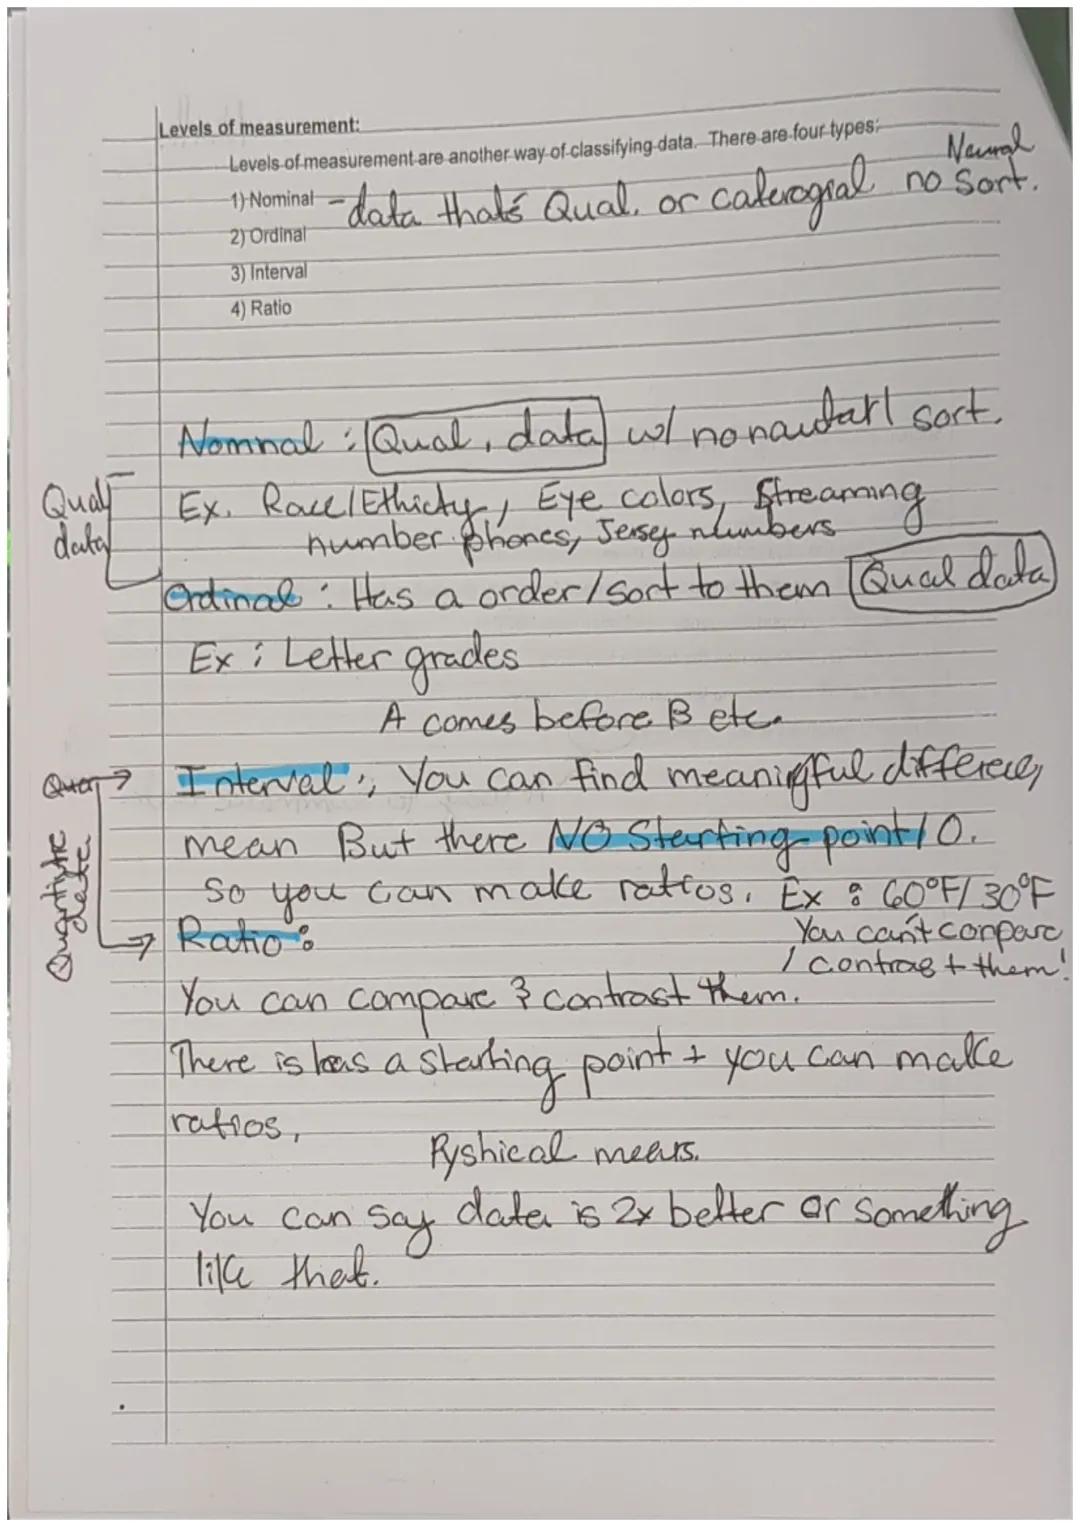 Levels of measurement:
Levels of measurement are another way of classifying data. There are four types:
1) Nominal - data that's Qual. or caterogial no sort.
2) Ordinal
3) Interval
4) Ratio
Nomnal : Qual. data w/ no sort.
Qual data
Ex. Race/Ethicty, Eye colors, Streaming
number phones, Jersey numbers
Ordinal : Has a order/sort to them Qual data
Ex : Letter grades
A comes before B etc.
Interval : You can find meaningful
mean But there NO Starting point/0.
So you can make ratios. Ex : 60°F/30°F
Ratio :
You can't conpare
/ contrast them!
You can compare & contrast them.
There is has a starting point + you can make
ratios,
Pyshical meas.
You can say data is 2x better or something
like that.